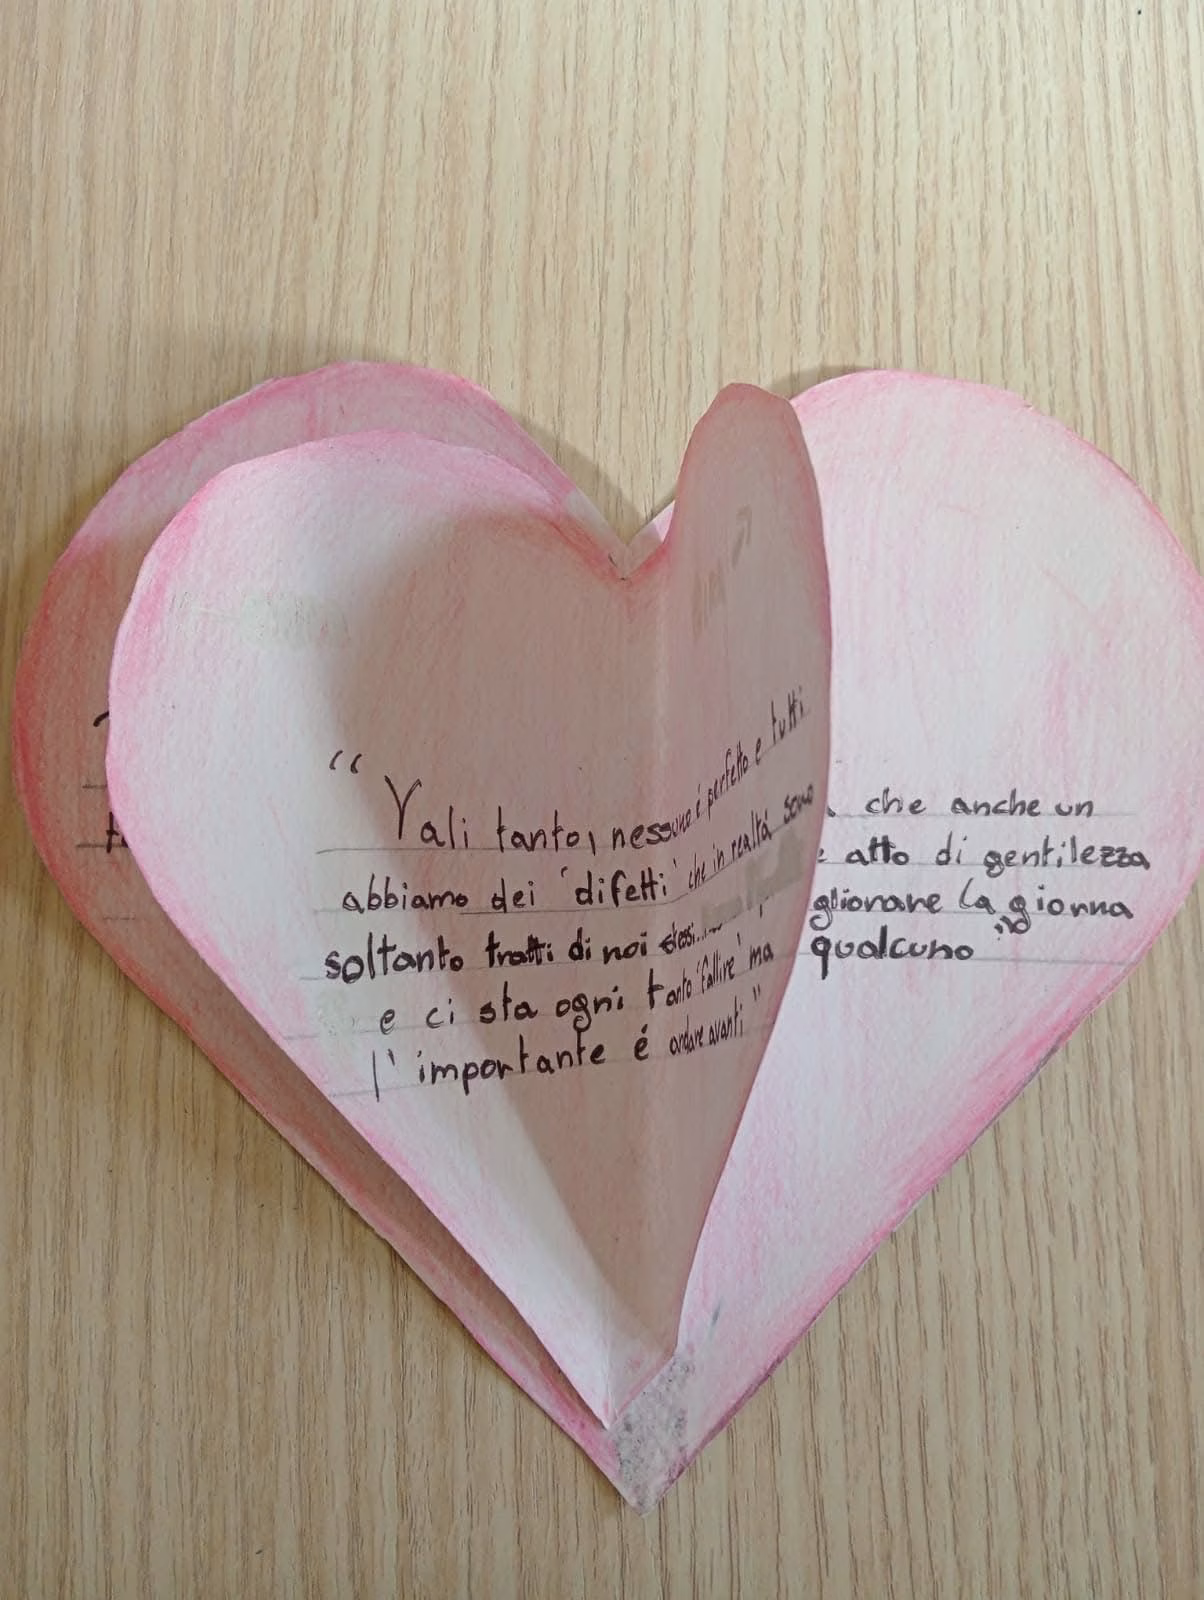 “Vali tanto, nessuno é perfetto e tutti
abbiamo dei 'difetti' che in realtá sono
soltanto tratti di noi stessi...
e ci sta ogni tanto 'fallire' ma
l'importante é andare avanti”
che anche un
atto di gentilezza
gliorare la giorna
qualcuno”